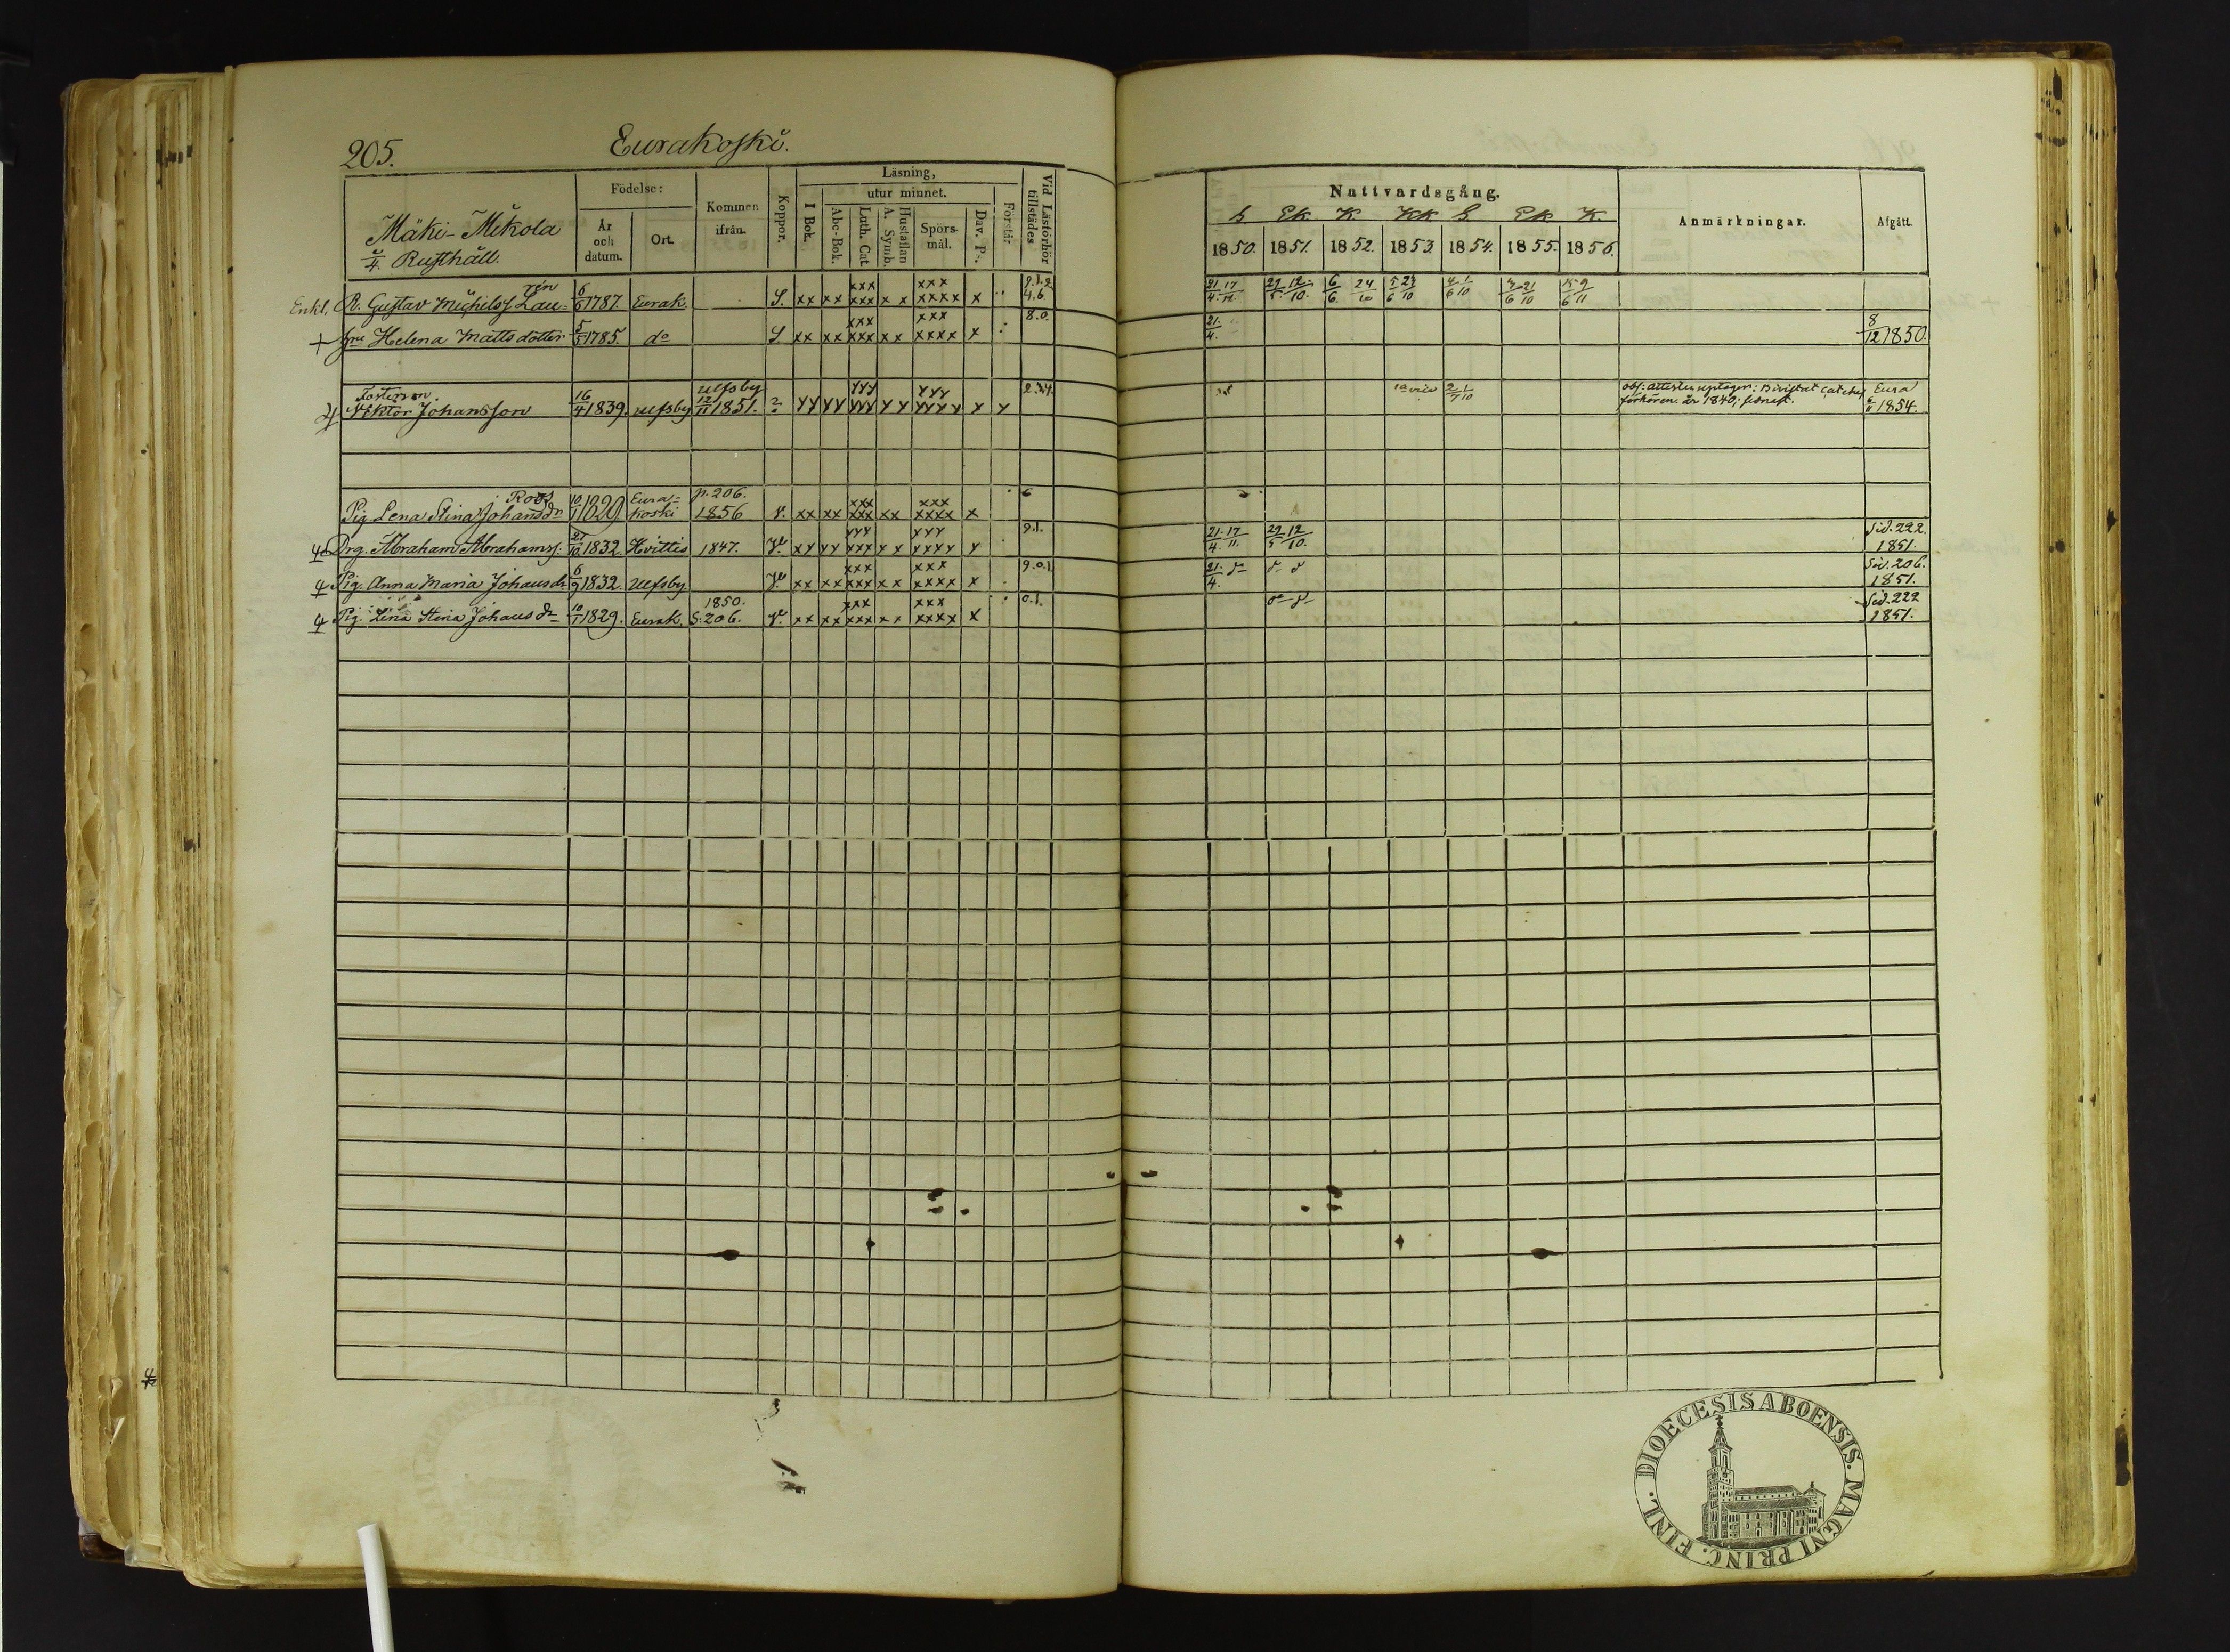 205. Eurakoski.
Mäki-Mikola
Rusthåll.
Födelse:
År och datum.
Ort.
Kommen ifrån.
Koppor.
Läsning,
utur minnet.
I Bok.
Abc-Bok.
Luth. Cat.
Hustaflan A. Symb.
Spörsmål.
Dav. Ps.
Förstår
Vid Läsförhör tillstädes
Nattvardsgång.
S Ek K Kk S Ek K.
1850. 1851. 1852. 1853 1854. 1855. 1856.
Anmärkningar.
Afgått.
Enkl. R. Gustav Michelss. Lau=rén 6/6 1787. Eurak. S. xx xx xxx xxx x x xxx xxxx x 9.1.2. 4.6. 21/4. 17/12. 27/5. 12/10. 6/6. 24/10 5/6 23/10 4/6 1/10
+ Helena Mattsdotter 5/5 1785. do S. xx xx xxx xxx x x xxx xxxx x 8.0. 21./4. 8/12 1850.
Fosterson.
Viktor Johansson 16/4 1839. Ulfsby Ulfsby 12/11 1851. yy yy yyy yyy y y yyy yyyy y y 2.3.4. 2/7 1/10 Eura 1854.
förhören är 1840;
Roos
Pig. Lena Stina Johansdr 10/1 1829 Eurakoski p. 206. 1856 v. xx xx xxx xxx xx xxx xxxx x 6
Drg. Abraham Abrahams. 27/10 1832. Hvittis 1847. yy yy yyy yyy y y yyy yyyy y 9.1. 21./4. 17/11. 27/5 12/10. Sid. 222 1851.
Pig. Anna Maria Johansdr 6/9 1832. Ulfsby xx xx xxx xxx x x xxx xxxx x 9.0.1. 21./4. Sid. 206. 1851.
Pig. Lena Stina Johansdr 10/1 1829. Eurak. 1850. S. 206. xx xx xxx xxx x x xxx xxxx x 0.1. Sid. 222 1851.
DIOECESIS ABOENSIS. MAGNI PRINC. FINL.